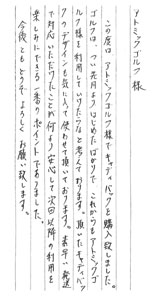 アトミックゴルフ 様
この度は アトミックゴルフ様でキャディバックを購入致しました。
ゴルフは、つい先月よりはじめたばかりで、これからもアトミックゴ
ルフ様を利用していけたらなと考えております。頂いたキャディバッ
クのデザインも気に入って使わせて頂いております。素早い発送
で対応いただけたことが何より安心して次回以降の利用を
楽しみにできる一番のポイントでありました。
今後ともどうぞよろしくお願い致します。